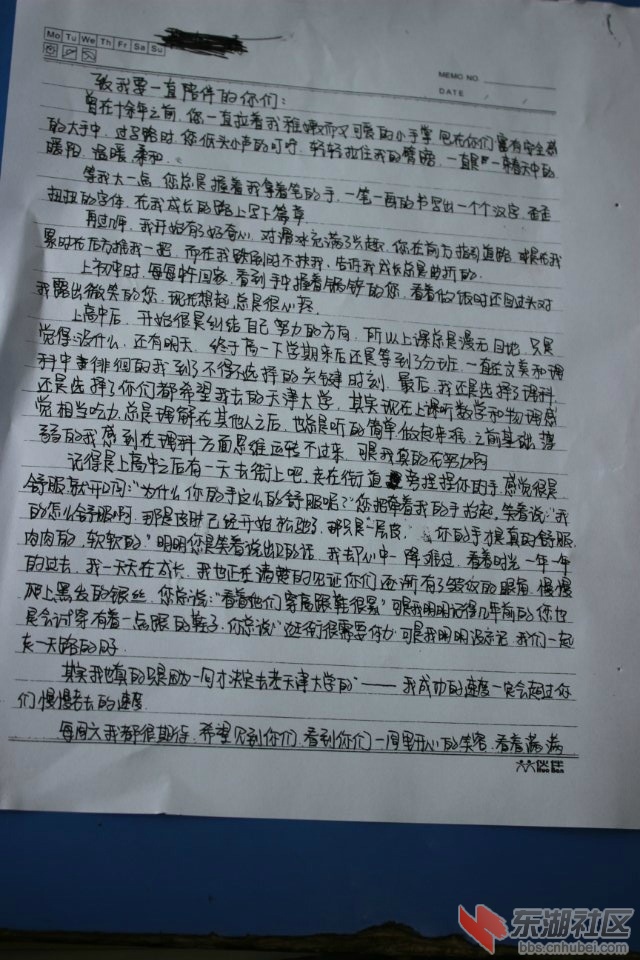 Mo Tu We Th Fr Sa Su
MEMO NO.
DATE
致我要一直陪伴的你们：
曾在十余年之前，您一直拉着我稚嫩而又可爱的小手掌 包在你们富有安全感
的大手中，过马路时 您低头小声的叮咛，轻轻拉住我的臂膀，一直是一束春天中的
暖阳，温暖，柔和．
等我大一点，您总是握着我拿着笔的手，一笔一画的书写出一个个汉字，歪歪
扭扭的字体，在我成长的路上写下篇章
再过几年，我开始有了好奇心，对滑冰充满了兴趣，您在前方指引道路，或是在我
累时在后方推我一把，而在我跌倒时不扶我，告诉我成长总是曲折的．
上初中时，每每中午回家，看到手中握着锅铲的您，看着做饭时还回过头对
我露出微笑的您，现在想起，总是很心疼．
上高中后，开始很是纠结自己努力的方向，所以上课总是漫无目地，只是
觉得没什么，还有明天，终于高一下学期末后还是等到了分班，一直在文案和理
科中徘徊的我到了不得不选择的关键时刻，最后，我还是选择了理科
还是选择了你们都希望我去的天津大学，其实现在上课听数学和物理感
觉相当吃力，总是理解在其他人之后，也总是听的简单做起来难，之前基础薄
弱的我感到在理科方面思维运转不过来，可是我真的在努力啊
记得是上高中之后有一天去街上吧，走在街道旁捏捏你的手，感觉很是
舒服，就开口问：“为什么你的手这么的舒服呢？”您把牵着我的手抬起，笑着说：“我
的怎么舒服啊，那是皮肤已经开始松弛了，那只是一层皮，你的手摸真的舒服，
肉肉的，软软的”明明您是笑着说出口的话，我却心中一阵难过，看着时光一年一年
的过去，我一天天在成长，我也正在清楚的见证你们逐渐有了皱纹的眼角，慢慢
爬上黑发的银丝，您总说：“看着他们穿高跟鞋很累”可是我明明记得几年前的您也
是会讨穿有着一点跟的鞋子，你总说“逛街很需要体力”可是我明明没忘记，我们一起
去一天路的日子
其实我也真的是因为一句才决定去考天津大学的“——我成功的速度一定会超过你
们慢慢老去的速度
每周六我都很期待，希望见到你们，看到你们一周里开心的笑容，看着满满
东湖社区
bbs.cnhubei.com